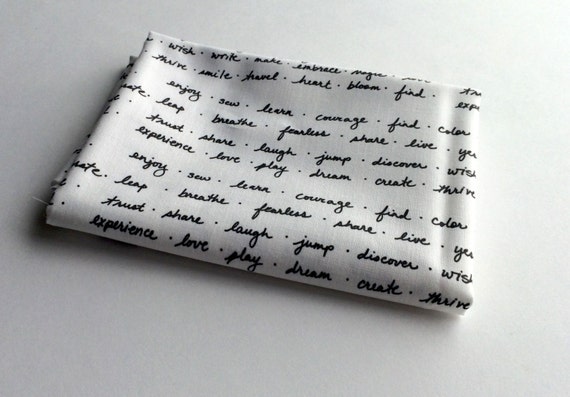 wish · write · make · embrace · magic · love
thrive · smile · travel · heart · bloom · find ·
enjoy · sew · learn · courage · find · color
leap · breathe · fearless · share · live · yes
trust · share · laugh · jump · discover · wish
experience · love · play · dream · create · thrive
enjoy · sew · learn · courage · find · color
leap · breathe · fearless · share · live · ye
trust · share · laugh · jump · discover · wish
experience · love · play · dream · create · thrive